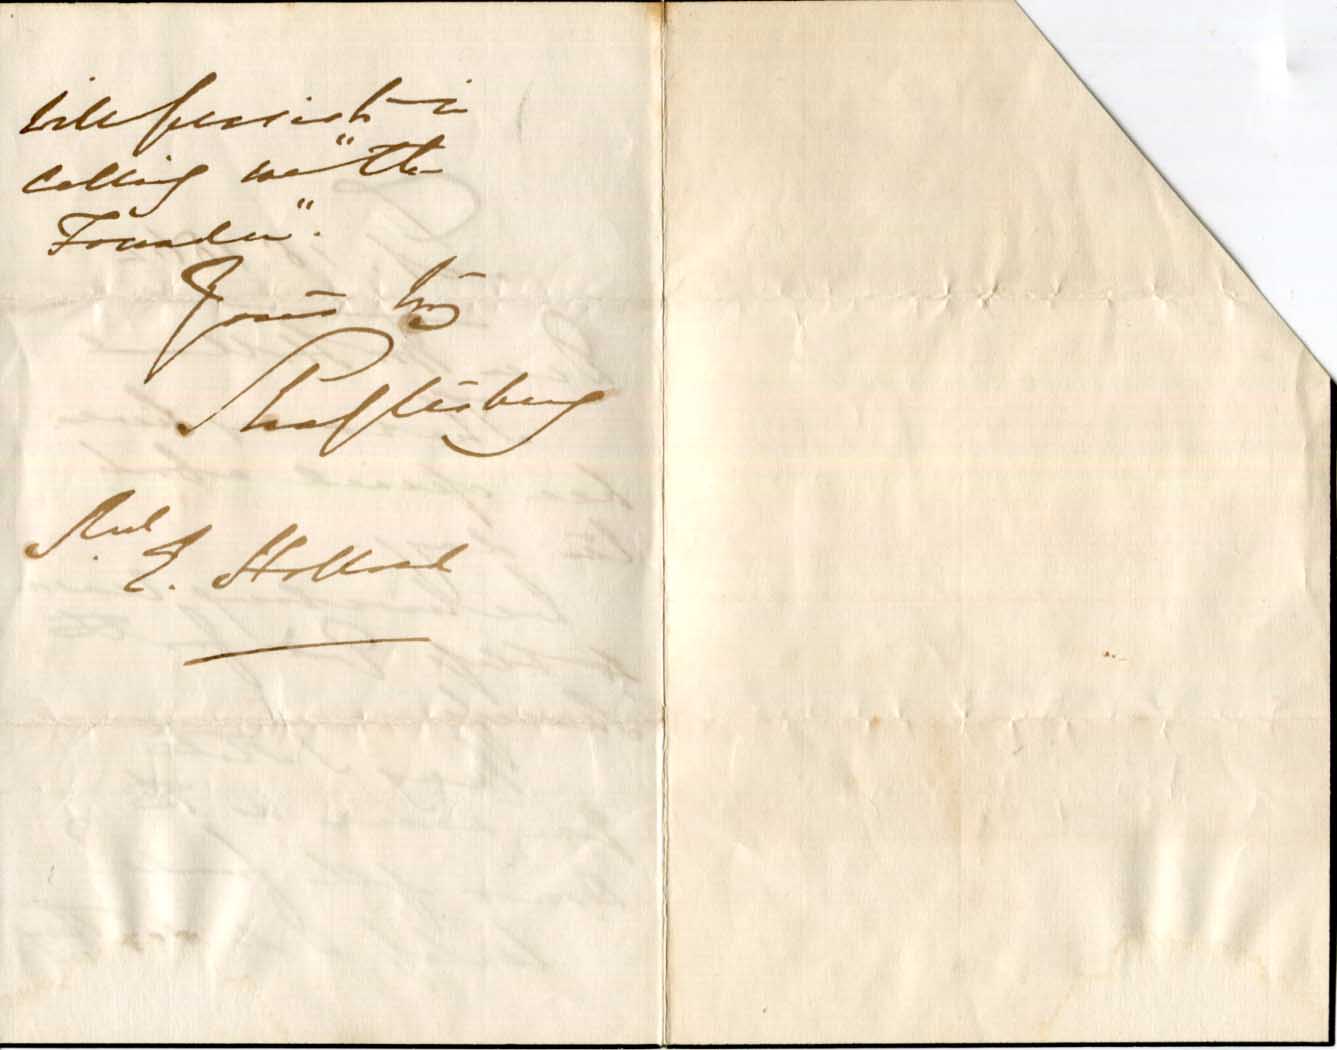 will persist in
calling me "the
Founder".
Yours try
Shaftesbury
Revd
E. Holland